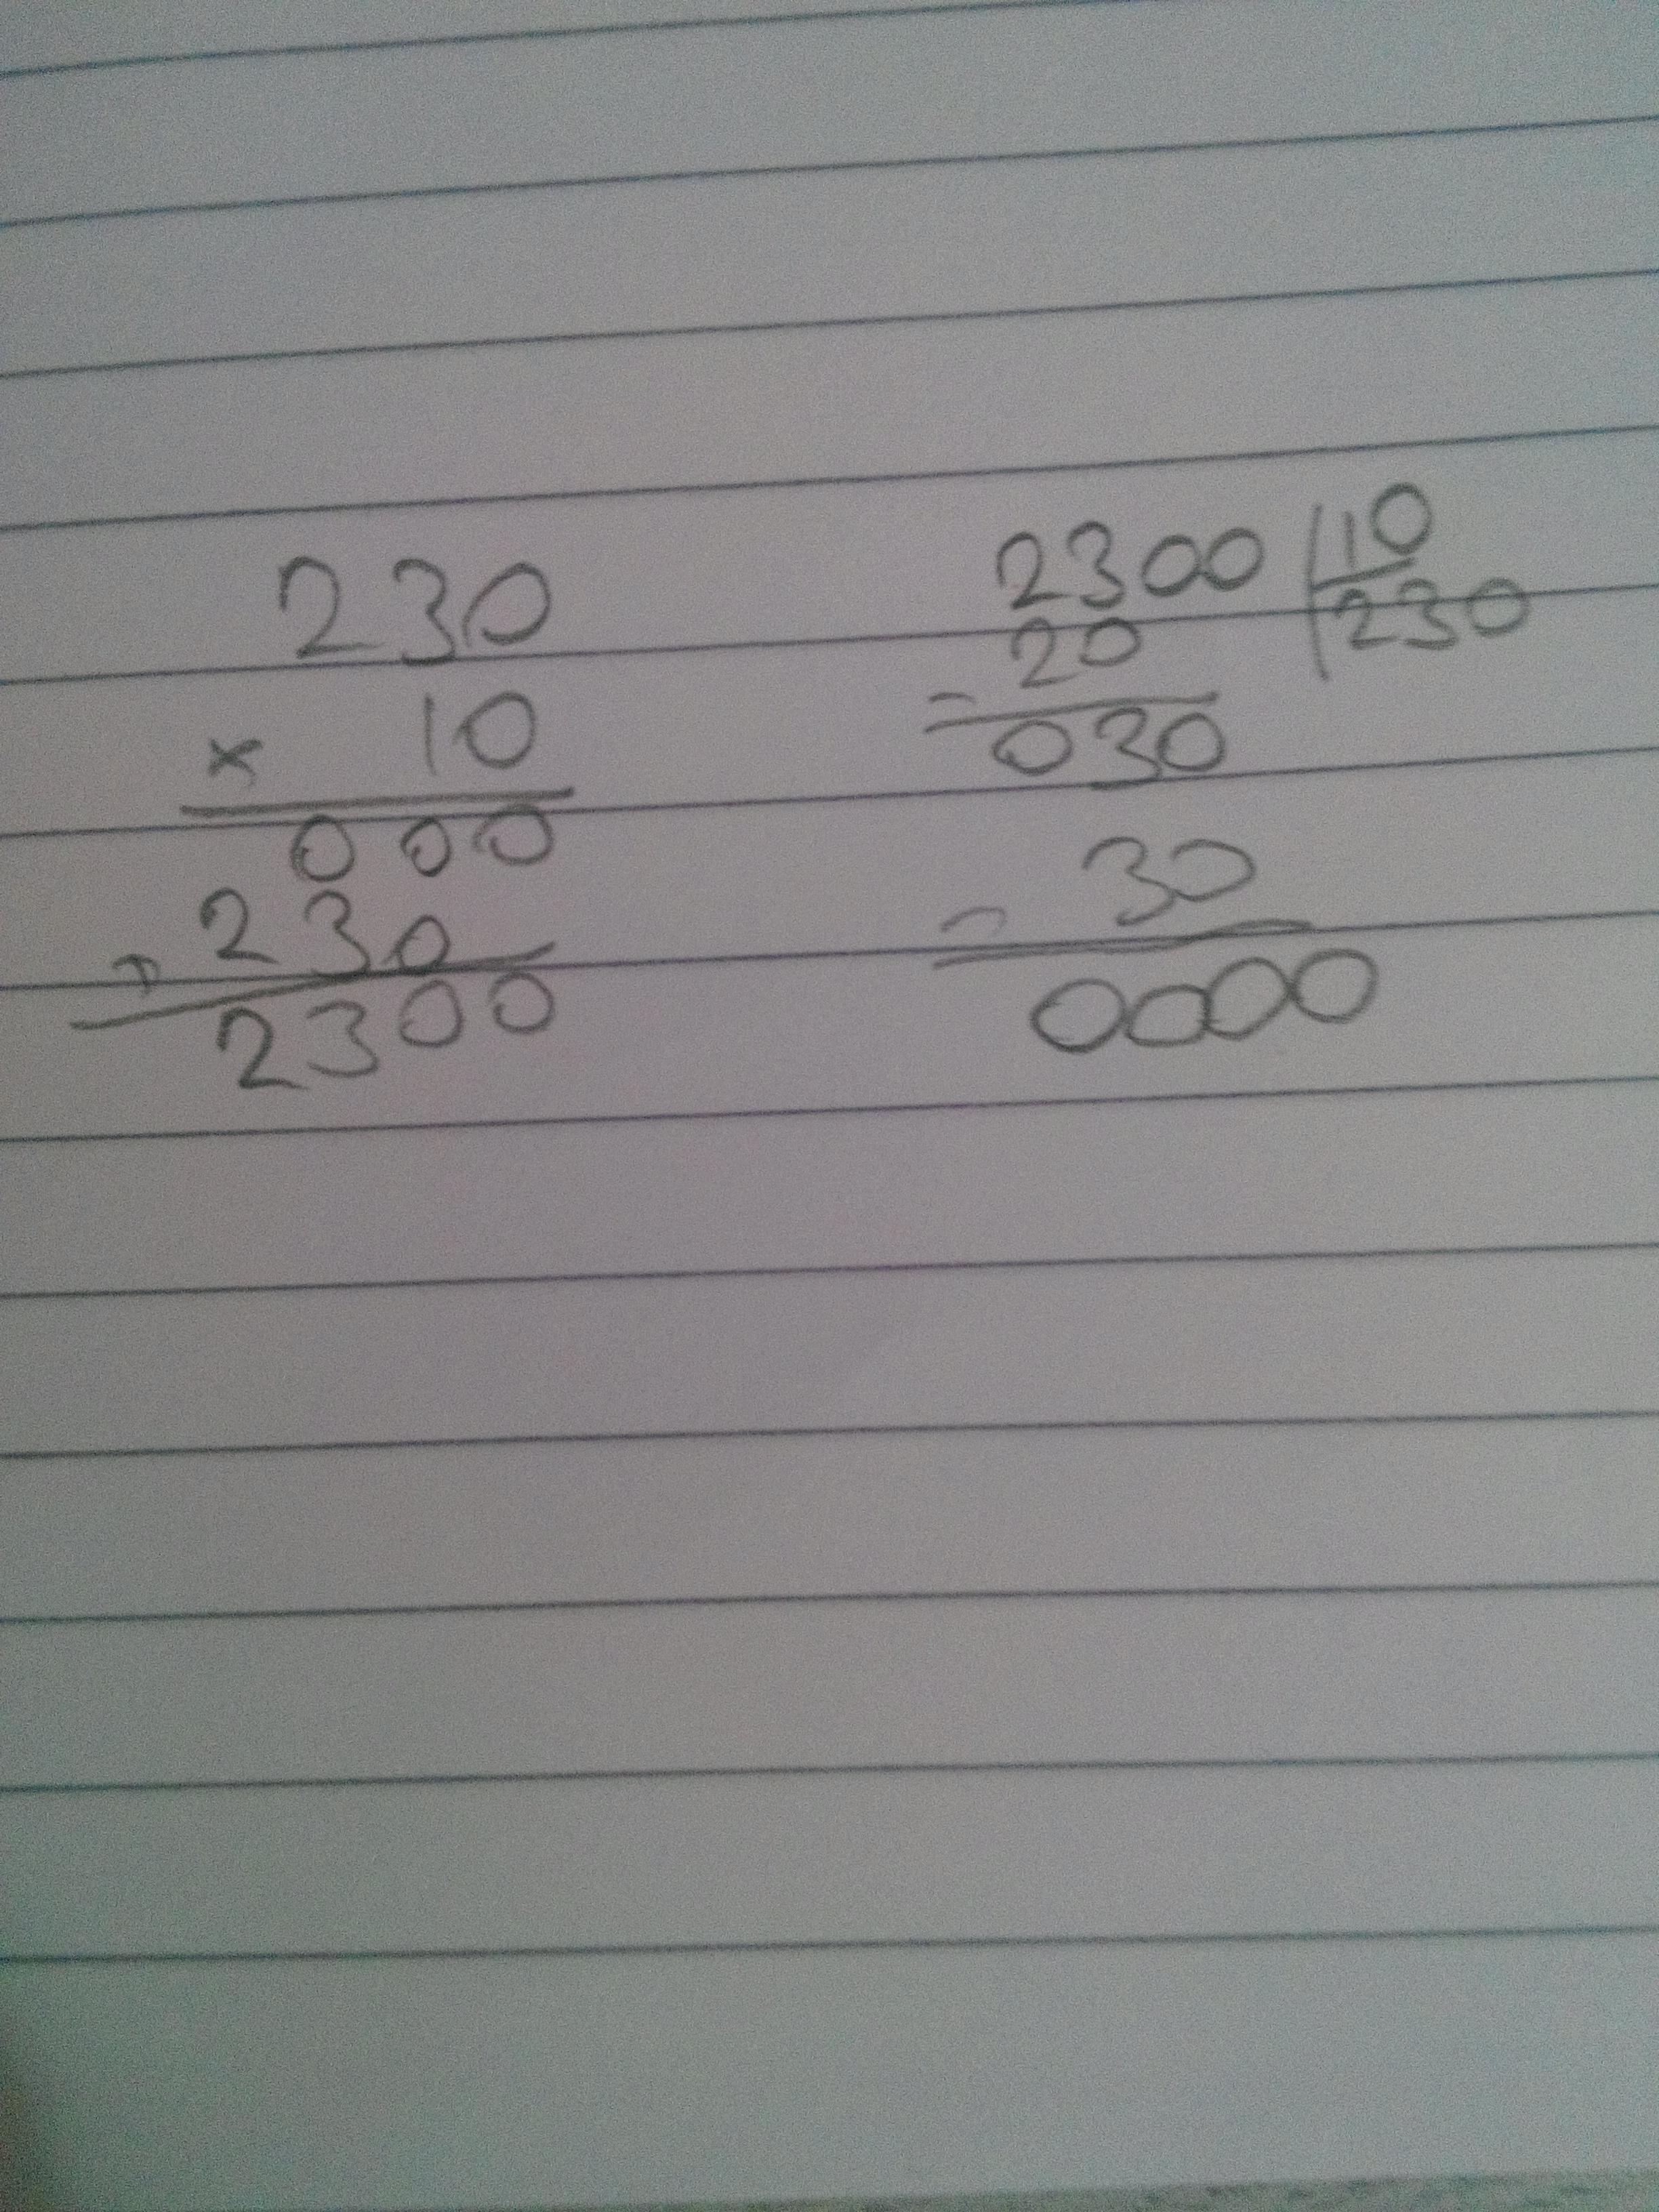 230
x 10
000
+ 230
2300
2300 | 10
20 | 230
- 030
- 30
0000